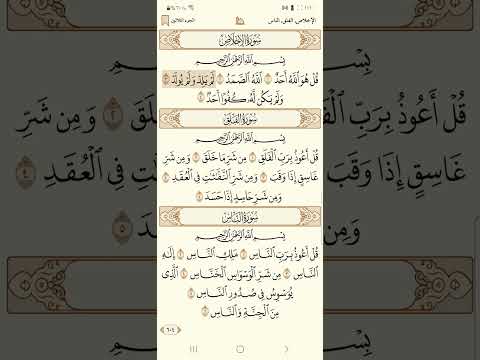 الإخلاص، الفلق، الناس
الجزء الثلاثون
سُورَةُ الإِخْلَاصِ
بِسْمِ اللَّهِ الرَّحْمَٰنِ الرَّحِيمِ
قُلْ هُوَ اللَّهُ أَحَدٌ ١ اللَّهُ الصَّمَدُ ٢ لَمْ يَلِدْ وَلَمْ يُولَدْ ٣
وَلَمْ يَكُن لَّهُ كُفُوًا أَحَدٌ ٤
سُورَةُ الفَلَقِ
بِسْمِ اللَّهِ الرَّحْمَٰنِ الرَّحِيمِ
قُلْ أَعُوذُ بِرَبِّ الْفَلَقِ ١ مِن شَرِّ مَا خَلَقَ ٢ وَمِن شَرِّ
غَاسِقٍ إِذَا وَقَبَ ٣ وَمِن شَرِّ النَّفَّاثَاتِ فِي الْعُقَدِ ٤
وَمِن شَرِّ حَاسِدٍ إِذَا حَسَدَ ٥
سُورَةُ النَّاسِ
بِسْمِ اللَّهِ الرَّحْمَٰنِ الرَّحِيمِ
قُلْ أَعُوذُ بِرَبِّ النَّاسِ ١ مَلِكِ النَّاسِ ٢ إِلَٰهِ
النَّاسِ ٣ مِن شَرِّ الْوَسْوَاسِ الْخَنَّاسِ ٤ الَّذِي
يُوَسْوِسُ فِي صُدُورِ النَّاسِ ٥
مِنَ الْجِنَّةِ وَالنَّاسِ ٦
٦٠٤